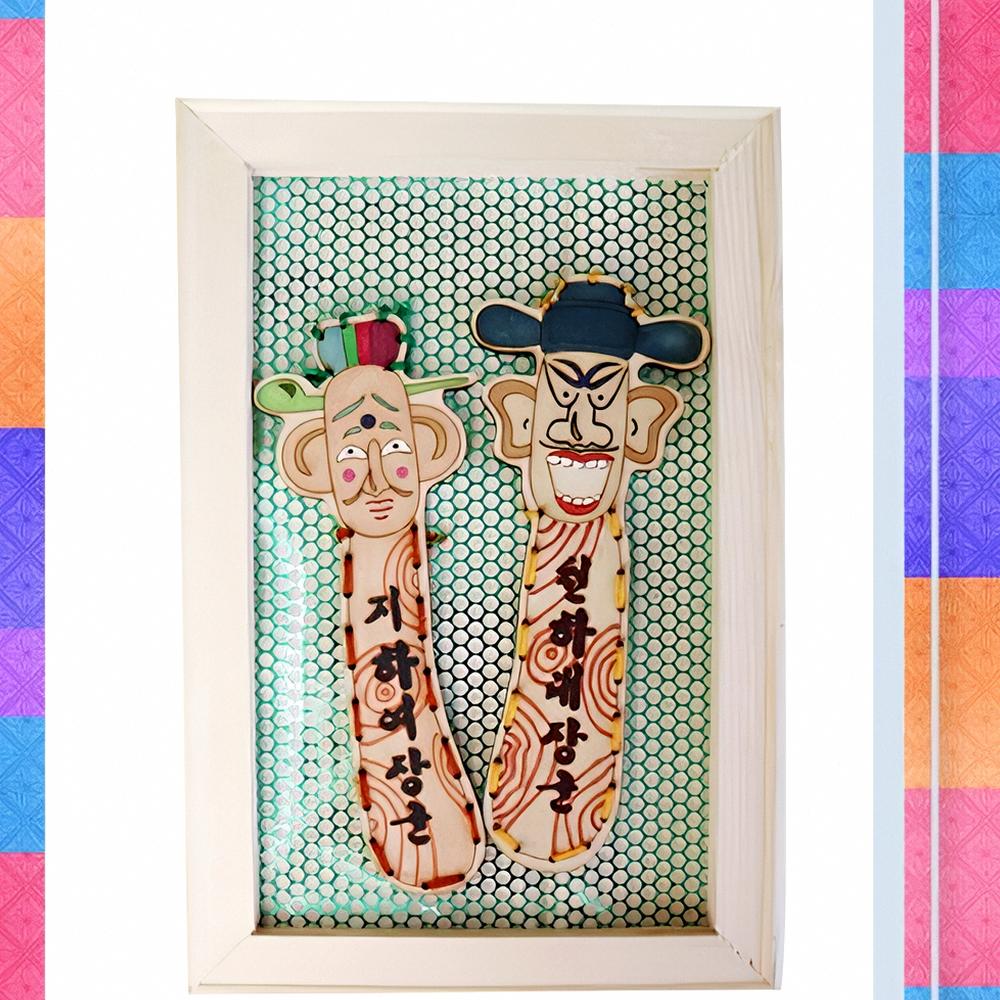 지하여장군
천하대장군